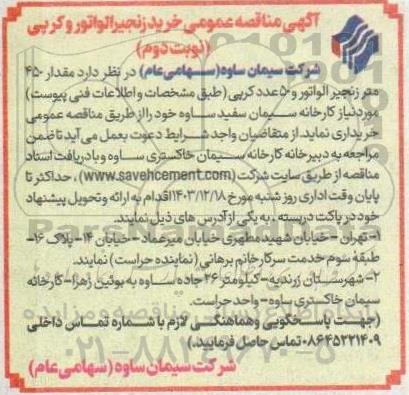 آگهی مناقصه عمومی خرید زنجیر الواتور و کربی
(نوبت دوم)
شرکت سیمان ساوه (سهامی عام) در نظر دارد مقدار ۴۵۰
متر زنجیر الواتور و ۵۰ عدد کربی (طبق مشخصات و اطلاعات فنی پیوست)
مورد نیاز کارخانه سیمان سفید ساوه خود را از طریق مناقصه عمومی
خریداری نماید. از متقاضیان واجد شرایط دعوت بعمل می آید تا ضمن
مراجعه به دبیرخانه کارخانه سیمان خاکستری ساوه و یا دریافت اسناد
مناقصه از طریق سایت شرکت (www.savehcement.com)، حداکثر تا
پایان وقت اداری روز شنبه مورخ ۱۴۰۳/۱۲/۱۸ اقدام به ارائه و تحویل پیشنهاد
خود در پاکت دربسته، به یکی از آدرس های ذیل نمایند.
۱- تهران - خیابان شهید مطهری خیابان میرعماد - خیابان ۱۴ - پلاک ۱۶-
طبقه سوم خدمت سرکار خانم برهانی (نماینده حراست) نمایند.
۲- شهرستان زرندیه - کیلومتر ۲۶ جاده ساوه به بوئین زهرا - کارخانه
سیمان خاکستری ساوه - واحد حراست.
(جهت پاسخگویی و هماهنگی لازم با شماره تماس داخلی
۰۸۶۴۵۳۲۱۴۰۹ تماس حاصل فرمایید.)
۰۲۱-۸۸۳۴۹۶۷۰-۵
شرکت سیمان ساوه (سهامی عام)